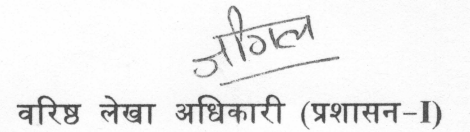 जीगल
वरिष्ठ लेखा अधिकारी (प्रशासन-I)